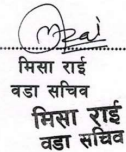 मिसा राई
वडा सचिव
मिसा राई
वडा सचिव